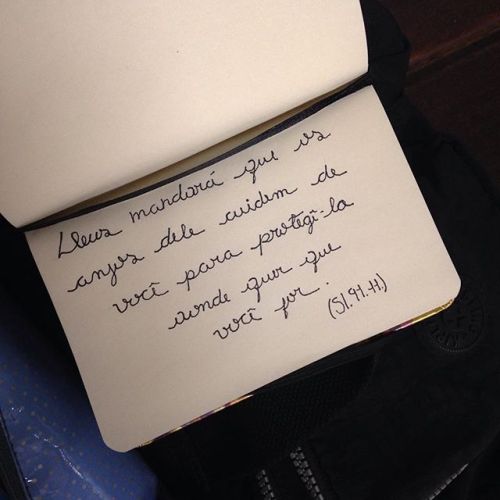 Deus mandará que os
anjos dele cuidem de
você para protegî-la
aonde quer que
você for.
(Sl.91.11)